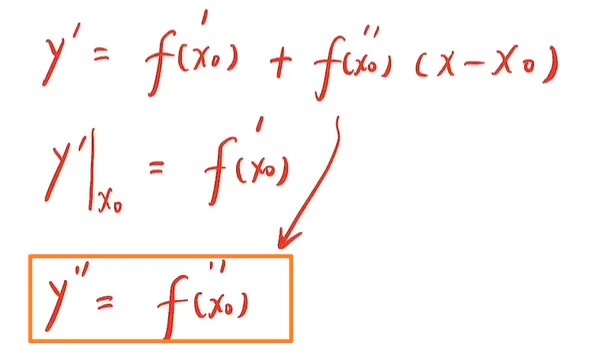 y' = f(x₀)' + f(x₀)'' (x-x₀)
y'|x₀ = f(x₀)'
y'' = f(x₀)''